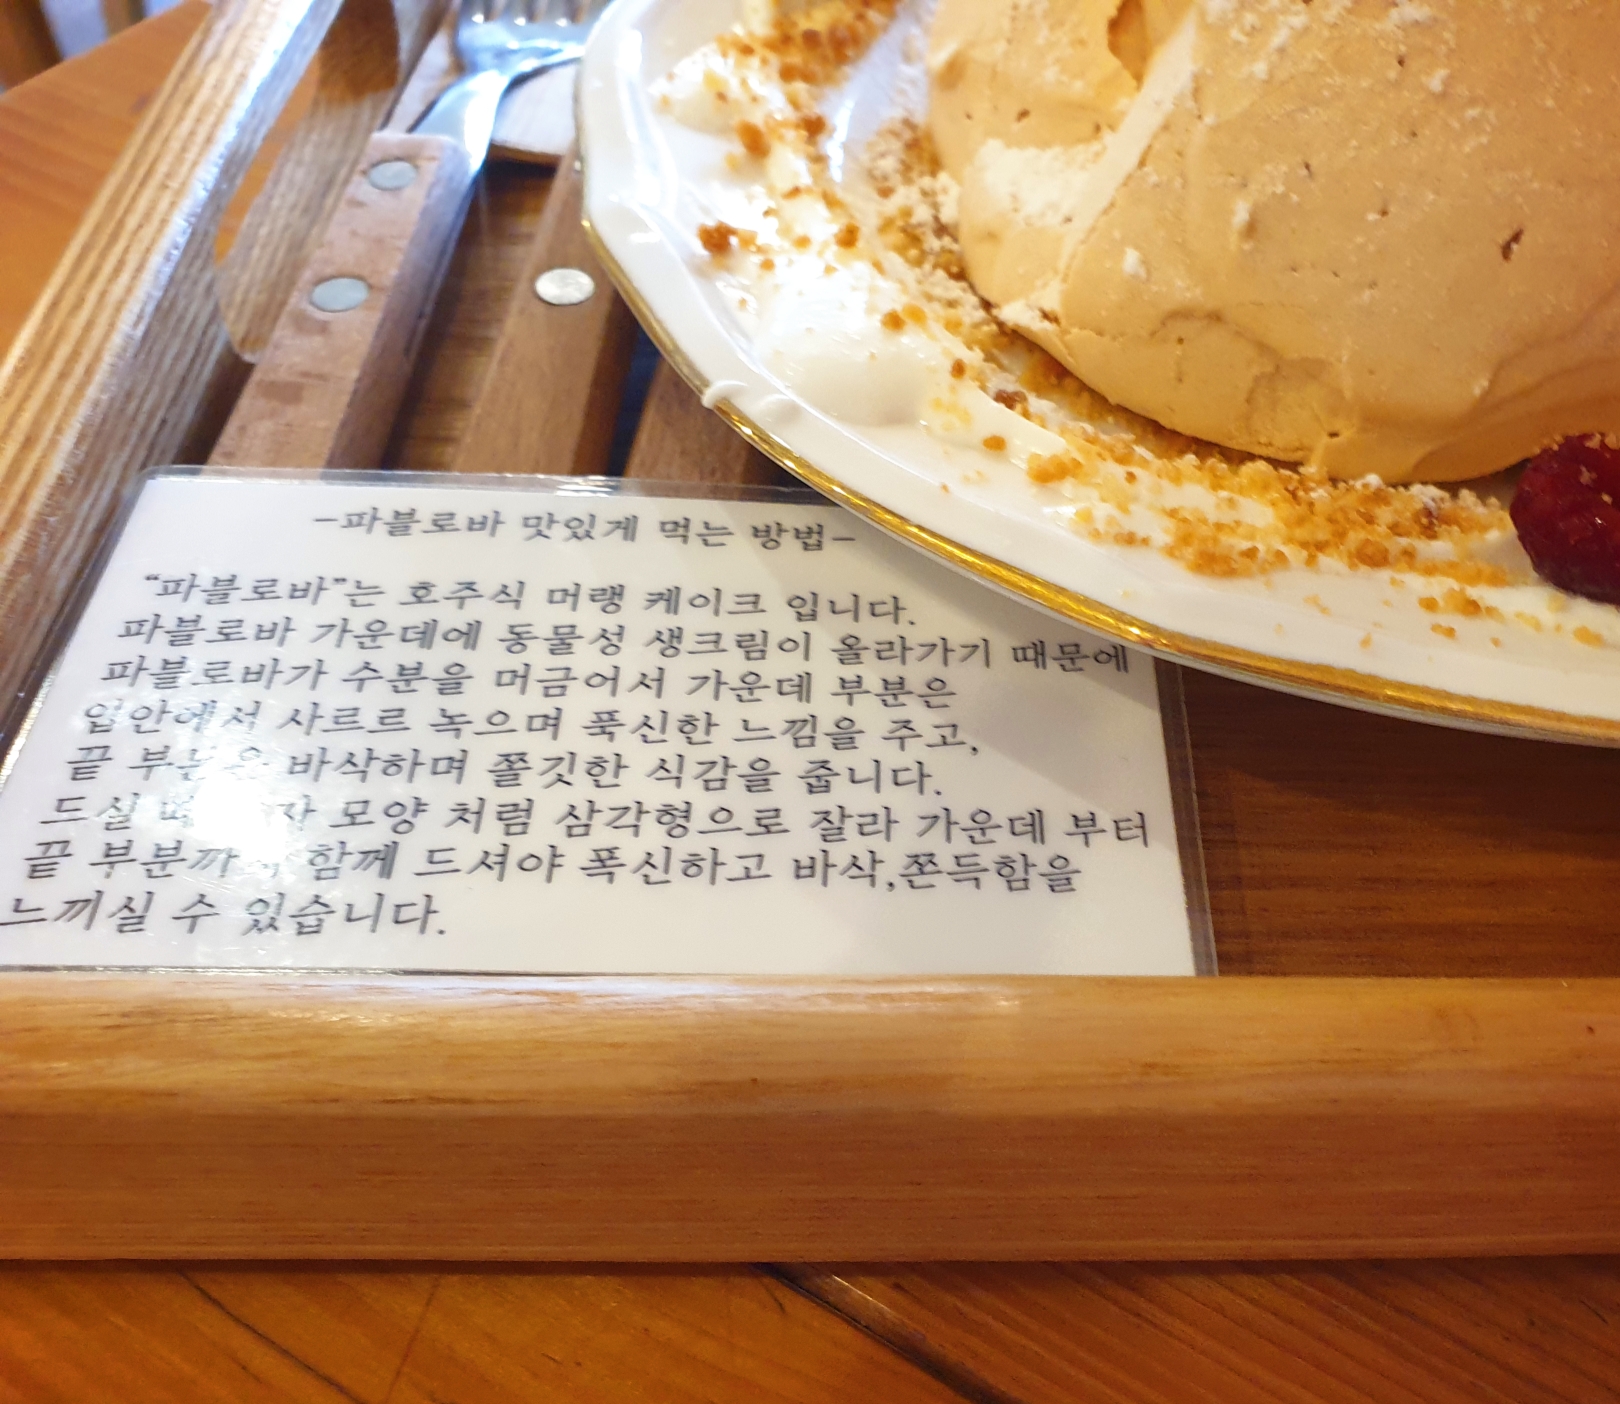 -파블로바 맛있게 먹는 방법-
"파블로바"는 호주식 머랭 케이크 입니다.
파블로바 가운데에 동물성 생크림이 올라가기 때문에
파블로바가 수분을 머금어서 가운데 부분은
입안에서 사르르 녹으며 푹신한 느낌을 주고,
끝 부분은 바삭하며 쫄깃한 식감을 줍니다.
드실 모양 처럼 삼각형으로 잘라 가운데 부터
끝 함께 드셔야 폭신하고 바삭,쫀득함을
느끼실 수 있습니다.